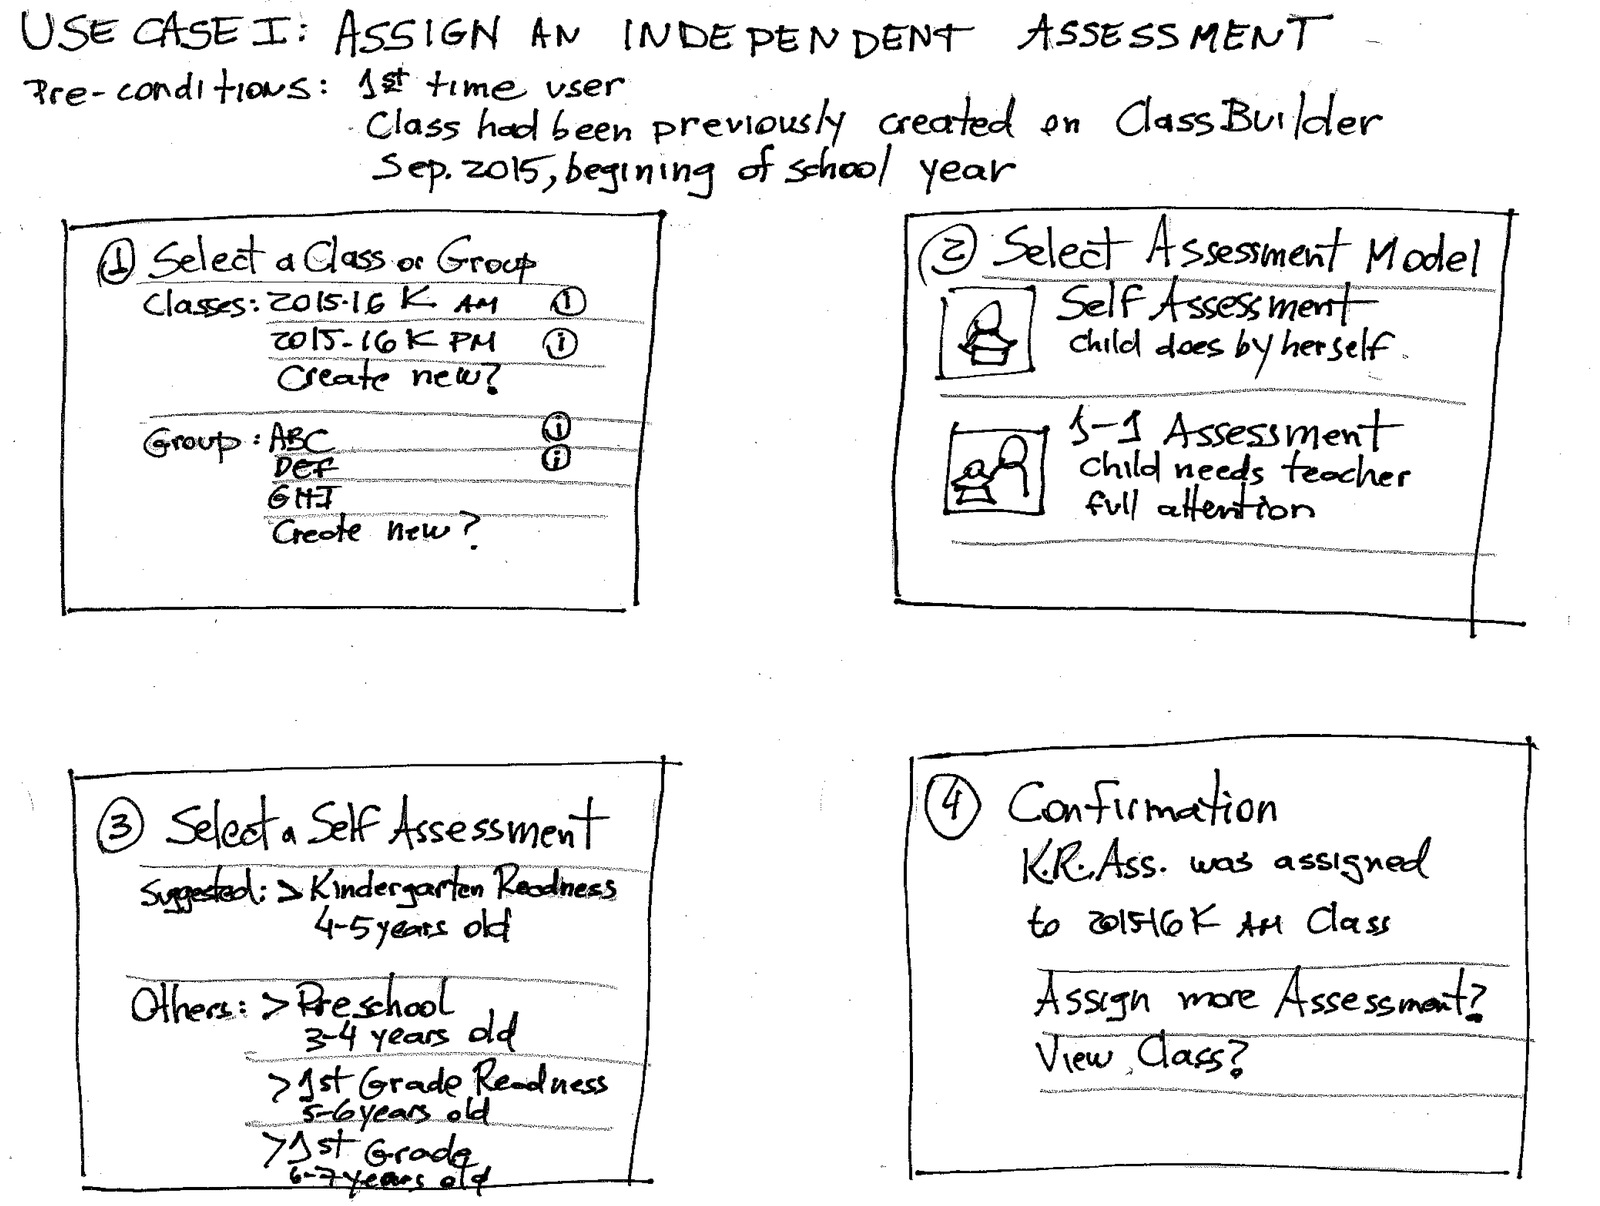 USE CASE I: ASSIGN AN INDEPENDENT ASSESSMENT
Pre-conditions: 1st time user
Class had been previously created on ClassBuilder
Sep. 2015, begining of school year
① Select a Class or Group
Classes: 2015-16 K AM ⓘ
2015-16 K PM ⓘ
Create new?
Group: ABC ⓘ
DEF ⓘ
GHI
Create new?
② Select Assessment Model
Self Assessment
Child does by herself.
1-1 Assessment
Child needs teacher
full attention
③ Select a Self Assessment
Suggested: > Kindergarten Readness
4-5 years old
Others: > Preschool
3-4 years old
> 1st Grade Readness
5-6 years old
> 1st Grade
6-7 years old
④ Confirmation
K.R. Ass. was assigned
to 2015-16 K AM Class
Assign more Assessment?
View Class?